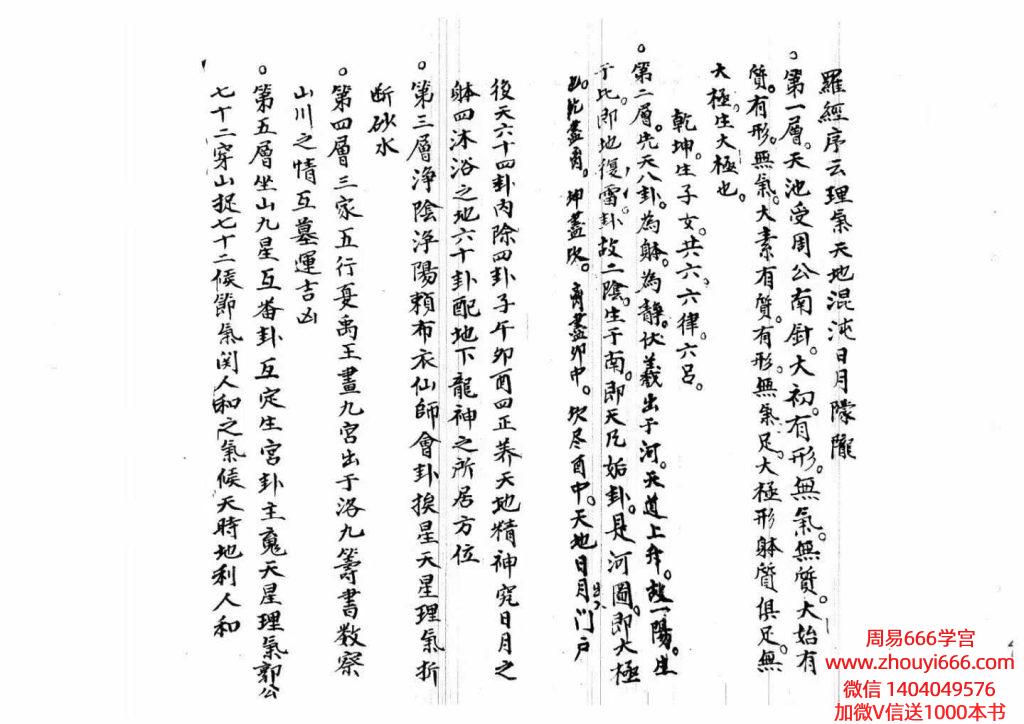 羅經序云理氣天地混沌日月朦朧
。第一層。天池受周公南針。大初。有形。無氣。無質。大始有
質。有形。無氣。大素有質。有形。無氣足。大極形躰質俱足。無
大極。生大極也。
乾坤。生子女。共六。六律。六呂。
。第二層。先天八卦。為躰。為靜。伏羲出于河。天道上升。故一陽。生
于北。即地復雷卦故二陰。生于南。即天風姤卦。是河圖。即大極
出。北盡离。坤盡坎。离盡卯中。坎尽酉中。天地日月門户
後天六十四卦內除四卦子午卯酉四正养天地精神究日月之
躰四沐浴之地六十卦配地下龍神之所居方位
。第三層淨陰淨陽賴布衣仙師會卦挨星天星理氣折
断砂水
。第四層三家五行夏禹王畫九宮出于洛九籌書数察
山川之情互墓運吉凶
。第五層坐山九星互番卦互定生宮卦主寬天星理氣郭公
七十二穿山捉七十二候節氣関人和之氣候天時地利人和
周易666学宫
www.zhouyi666.com
微信 1404049576
加微V信送1000本书